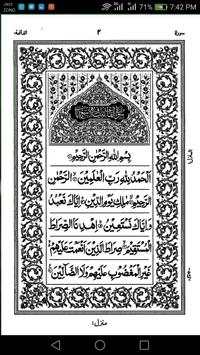 JAZZ
ZONG
71%
7:42 PM
سورة
٢
الفاتحة
بِسْمِ اللهِ الرَّحْمٰنِ الرَّحِيْمِ
اَلْحَمْدُ لِلّٰهِ رَبِّ الْعٰلَمِيْنَ الرَّحْمٰنِ
الرَّحِيْمِ مٰلِكِ يَوْمِ الدِّيْنِ اِيَّاكَ نَعْبُدُ
وَاِيَّاكَ نَسْتَعِيْنُ اِهْدِنَا الصِّرَاطَ
الْمُسْتَقِيْمَ صِرَاطَ الَّذِيْنَ اَنْعَمْتَ عَلَيْهِمْ
غَيْرِ الْمَغْضُوْبِ عَلَيْهِمْ وَلَا الضَّآلِّيْنَ
منزل